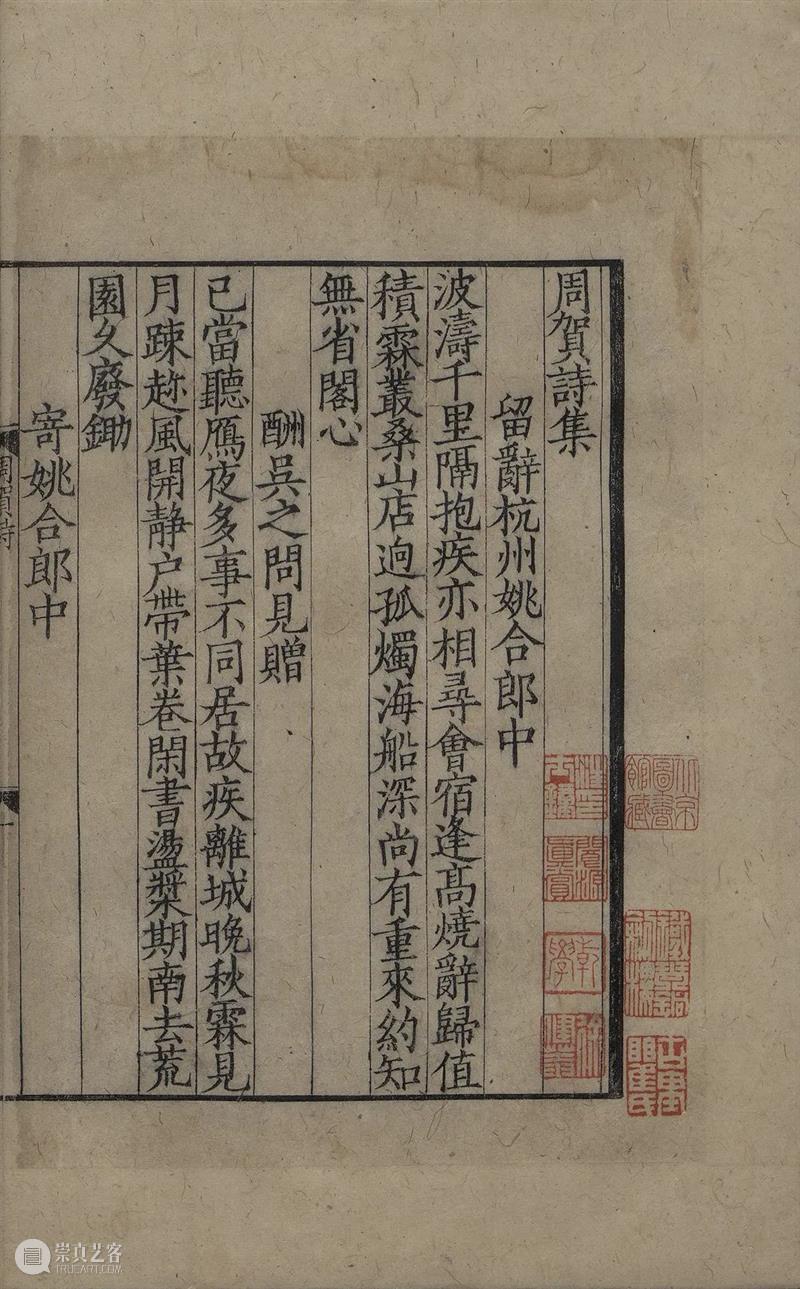 周賀詩集
留辭杭州姚合郎中
波濤千里隔抱疾亦相尋會宿逢高燒辭歸值
積霖叢桑山店迥孤燭海船深尚有重來約知
無省閣心
酬吳之問見贈
已當聽鴈夜多事不同居故疾離城晚秋霖見
月踈趂風開静户帶葉卷閑書盪槳期南去荒
園久廢鋤
寄姚合郎中
周賀詩
一
崇真艺客
TRUEART.COM